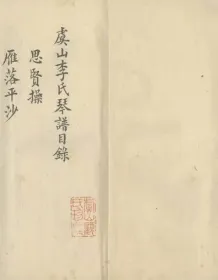 虞山李氏琴譜目錄
思賢操
雁落平沙